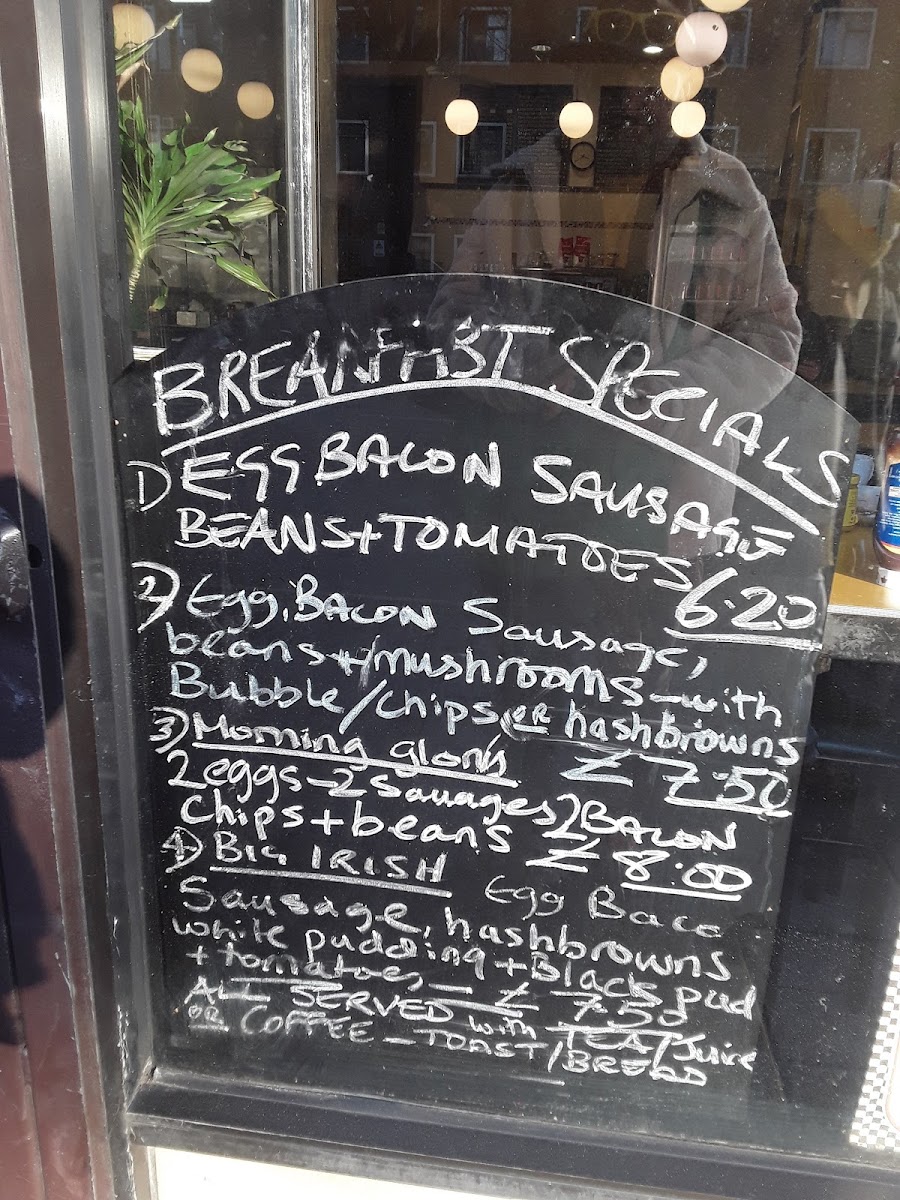 BREAKFAST SPECIALS
1) EGG BACON SAUSAGE
BEANS + TOMATOES 6.20
2) Egg, BACON Sausage,
beans + / mushrooms - with
Bubble / chips OR hashbrowns
£ 7.50
3) Morning glory
2 eggs - 2 Sauages 2 BACON
Chips + beans £ 8.00
4) BIG IRISH
Egg Baco
Sausage, hashbrowns
white pudding + Black pud
+ tomatoes, - £ 7.50
ALL SERVED with TEA / Juice
OR COFFEE - TOAST / BREAD